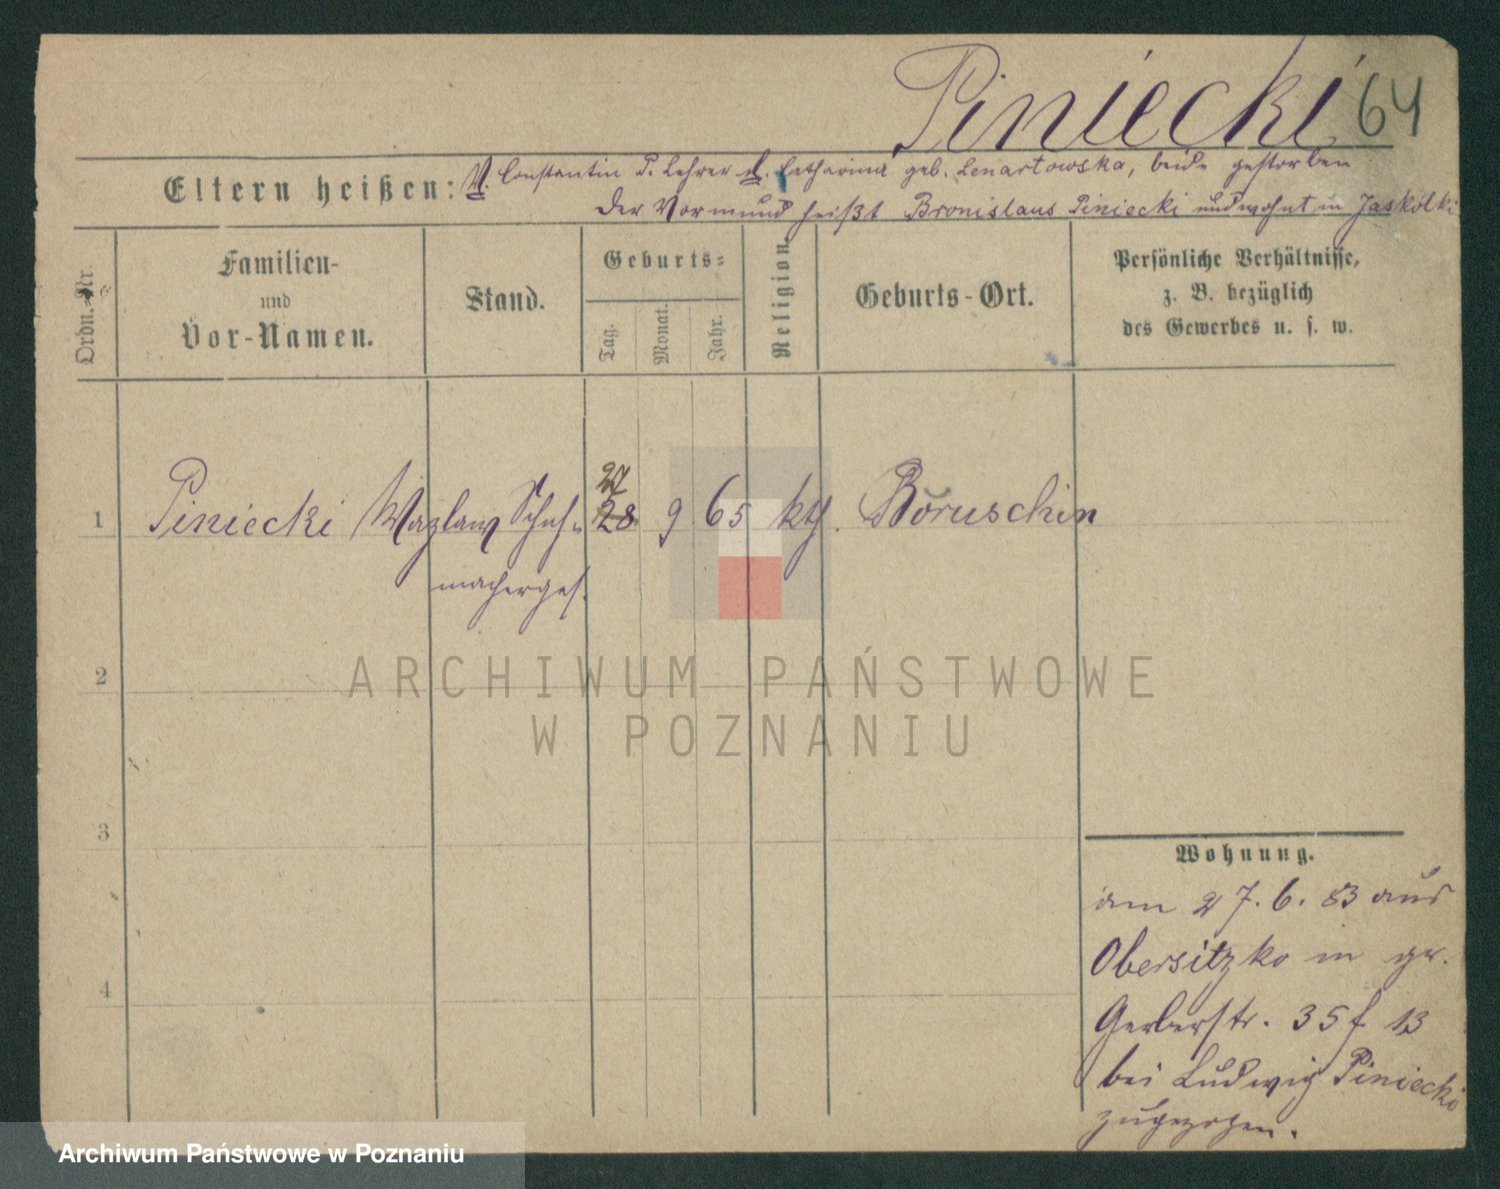 Piniecki 64
Eltern heißen: V. Constantin P. Lehrer M. Catharina geb. Lenartowska, beide gestorben
Der Vormund heißt Bronislaus Piniecki und wohnt in Jaskolki
Ordn.-Nr.
Familien-
und
Vor-Namen.
Stand.
Geburts-
Tag.
Monat.
Jahr.
Religion.
Geburts-Ort.
Persönliche Verhältnisse,
z. B. bezüglich
des Gewerbes u. s. w.
27
1 Piniecki Wazlaw Schuh- 28 9 65 kth. Boruschin
macherges.
2
3
4
Wohnung.
am 27. 6. 83 aus
Obersitzko in gr.
Gerberstr. 35 f 13
bei Ludwig Piniecki
zugezogen.
ARCHIWUM PAŃSTWOWE
W POZNANIU
Archiwum Państwowe w Poznaniu